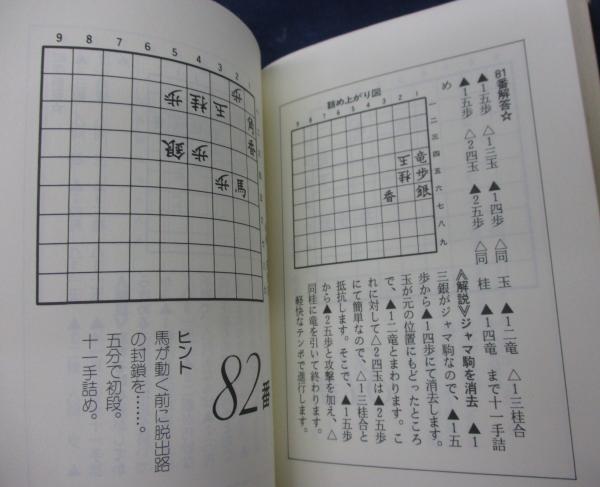 81番解答☆
▲1五歩 △1三玉 ▲1四歩 △同玉 ▲1二竜 △1三桂合
▲1五歩 △2四玉 ▲2五歩 △同桂 ▲1四竜 まで十一手詰
め
《解説》ジャマ駒を消去 ▲1
三銀がジャマ駒なので、▲1五
歩から▲1四歩にて消去します。
玉が元の位置にもどったところ
で、▲1二竜とまわります。こ
れに対して△2四玉は▲2五歩
にて簡単なので、△1三桂合と
抵抗します。そこで、▲1五歩
から▲2五歩と攻撃を加え、△
同桂に竜を引いて終わります。
軽快なテンポで進行します。
詰め上がり図
9 8 7 6 5 4 3 2 1
一二三四五六七八九
竜
玉 桂 歩
銀
香
82番
ヒント
馬が動く前に脱出路
の封鎖を……。
五分で初段。
十一手詰め。
9 8 7 6 5 4 3 2 1
歩
歩 桂 玉
香
銀 歩
歩 馬